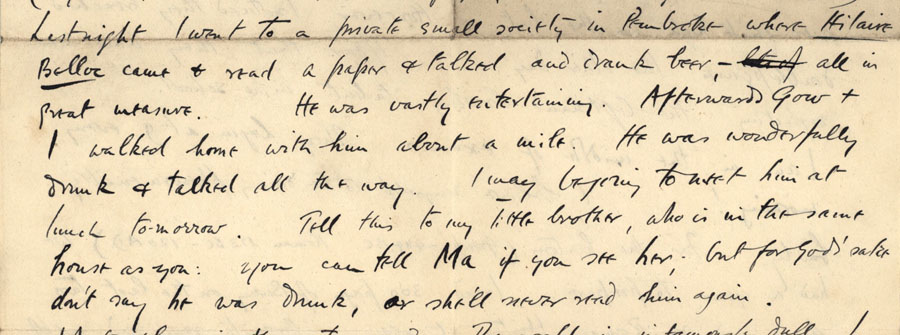 Last night I went to a private small society in Pembroke where Hilaire
Belloc came & read a paper & talked and drank beer, – all in
great measure. He was vastly entertaining. Afterwards Gow +
I walked home with him about a mile. He was wonderfully
drunk & talked all the way. I may be going to meet him at
lunch tomorrow. Tell this to my little brother, who is in the same
house as you: you can tell Ma if you see her; but for God's sake
don't say he was drunk, or she'll never read him again.